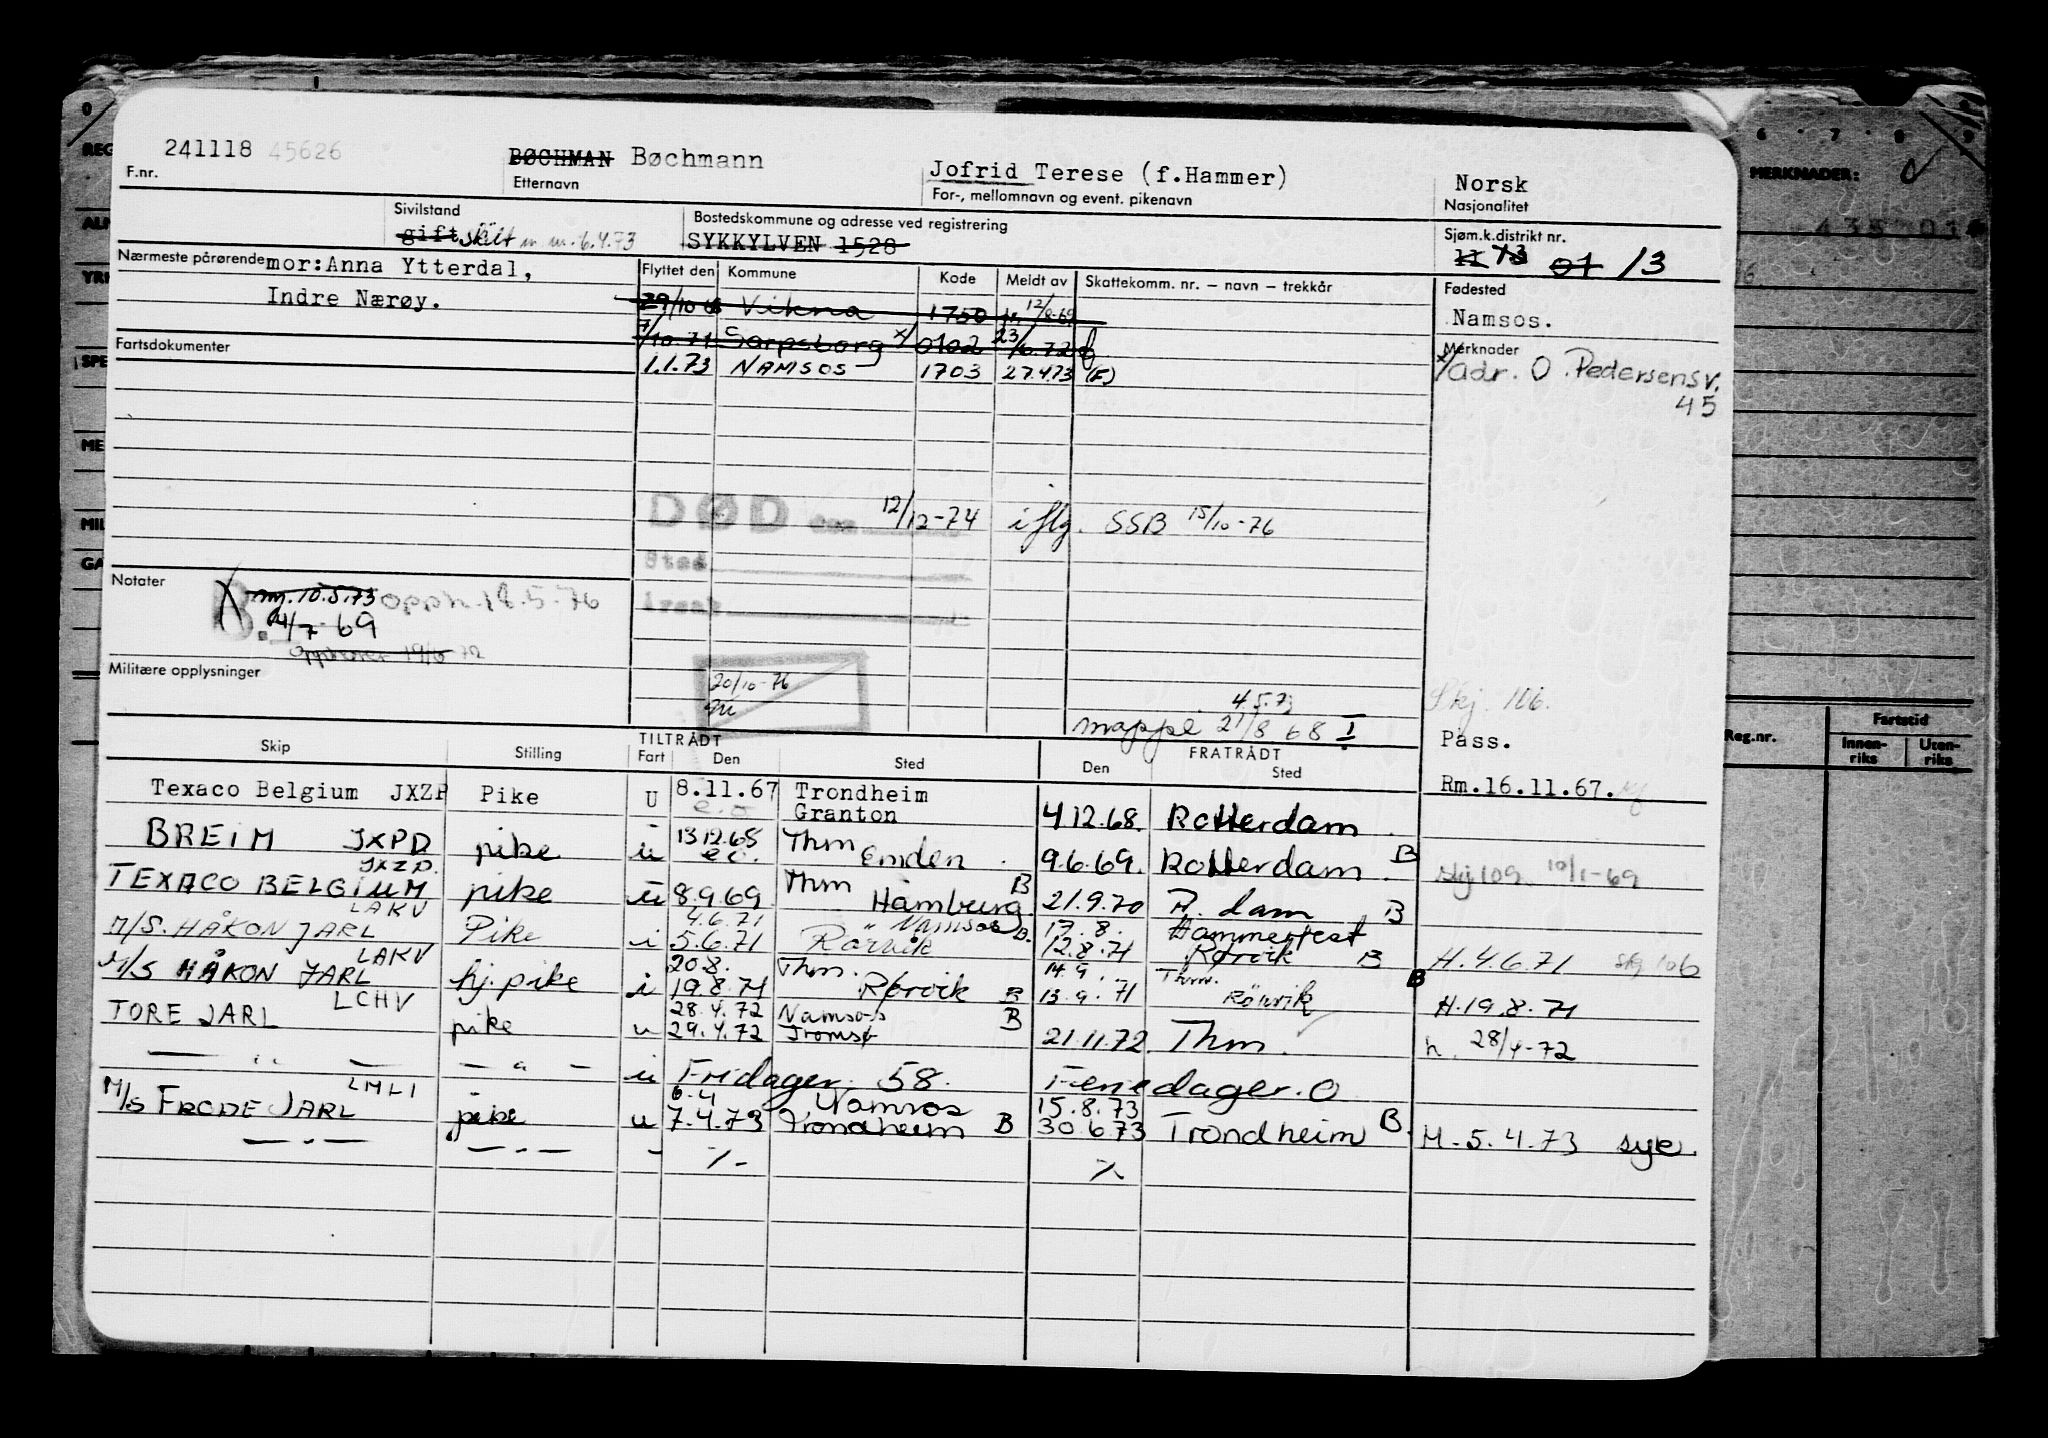 241118 45626
BØCHMAN Bøchmann
Jofrid Terese (f.Hammer)
Norsk
F.nr.
Etternavn
For-, mellomnavn og event. pikenavn
Nasjonalitet
Sivilstand
gift skilt m. m. 6.4.73
Bostedskommune og adresse ved registrering
SYKKYLVEN 1528
Sjøm.k.distrikt nr.
11 13 01 13
Nærmeste pårørende mor:Anna Ytterdal,
Indre Nærøy.
Flyttet den Kommune Kode Meldt av Skattekomm. nr. – navn – trekkår
29/10 68 Vikna 1750 12/8-69
7/10.71 Sarpsborg x/ 0102 23/6.72
1.1.73 NAMSOS 1703 27.4.73 (F)
Fødested
Namsos.
Merknader
x/adr. O. Pedersensv.
45
Fartsdokumenter
DØD den 12/12-74 iflg. SSB 15/10-76
Sted
Årsak
Notater
B. 10.5.73 opph. 18.5-76
14/7 69
Opphevet 19/6 72
Militære opplysninger
20/10-76
4.5.73
mappe 21/8 68 I
Skj. 106.
Pass.
Rm.16.11.67.
Skip Stilling TILTRÅDT Fart Den Sted FRATRÅDT Den Sted
Texaco Belgium JXZP Pike U 8.11.67 Trondheim
e.o Granton 4.12.68. Rotterdam
BREIM JXPD pike u 13.12.68 Thm
e.o. Emden 9.6.69. Rotterdam B skj 109 10/1-69
TEXACO BELGIUM JXZP. pike u 8.9.69 Thm Hamburg B 21.9.70 R.dam B
M/S. HÅKON JARL LAKV Pike i 4.6.71 Namsos 17.8. Hammerfest
5.6.71 Rørvik B. 12.8.71 Rørvik B H.4.6.71 skj 106
M/S HÅKON JARL LAKV hj.pike i 20.8. Thm. 14.9. Thm.
19.8.71 Rørvik B 13.9.71 Rörvik B H.19.8.71
TORE JARL LCHV pike u 28.4.72 Namsos B
29.4.72 Tromsø 21.11.72 Thm. h. 28/4-72
— " — — " — u Fridager. 58. Feriedager. O
M/S FRODE JARL LMLI pike u 6.4 Namsos 15.8.73
7.4.73 Trondheim B 30.6.73 Trondheim B. H.5.4.73 syk.
— " — — " — - %- %
MERKNADER:
Reg.nr.
Fartstid
Innen-riks
Uten-riks
6 7 8 9